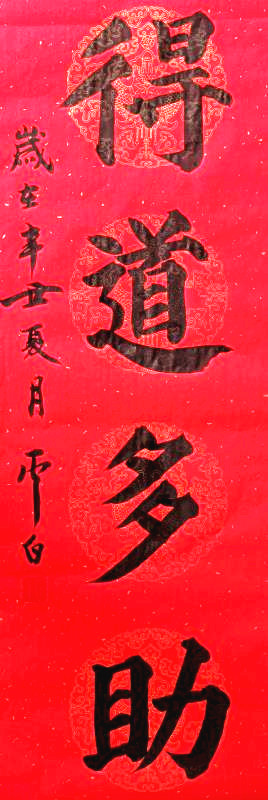 得道多助
歲在辛丑夏月